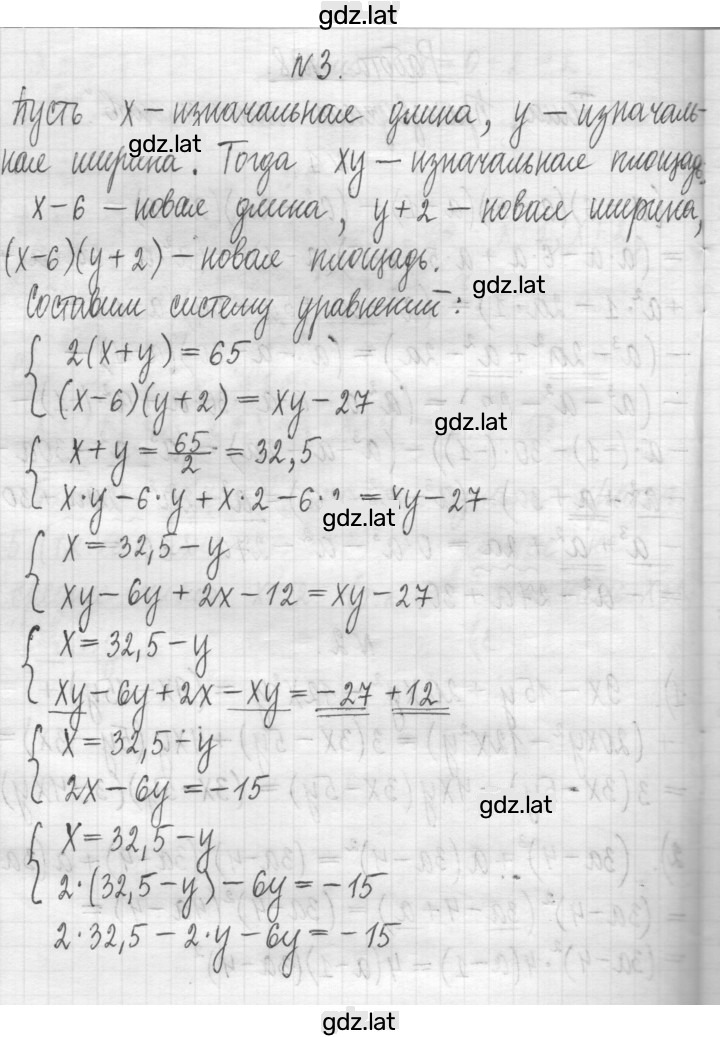 gdz.lat
N 3.
Пусть x – изначальная длина, y – изначаль-
ная ширина. Тогда xy – изначальная площадь.
gdz.lat
x-6 – новая длина, y+2 – новая ширина,
(x-6)(y+2) – новая площадь.
gdz.lat
Составим систему уравнений:
{ 2(x+y) = 65
(x-6)(y+2) = xy-27
gdz.lat
{ x+y = 65/2 = 32,5
x·y-6·y+x·2-6· = xy-27
gdz.lat
{ x = 32,5-y
xy-6y+2x-12 = xy-27
{ x = 32,5-y
xy-6y+2x-xy = -27+12
{ x = 32,5-y
2x-6y = -15
gdz.lat
{ x = 32,5-y
2·(32,5-y)-6y = -15
2·32,5-2·y-6y = -15
gdz.lat